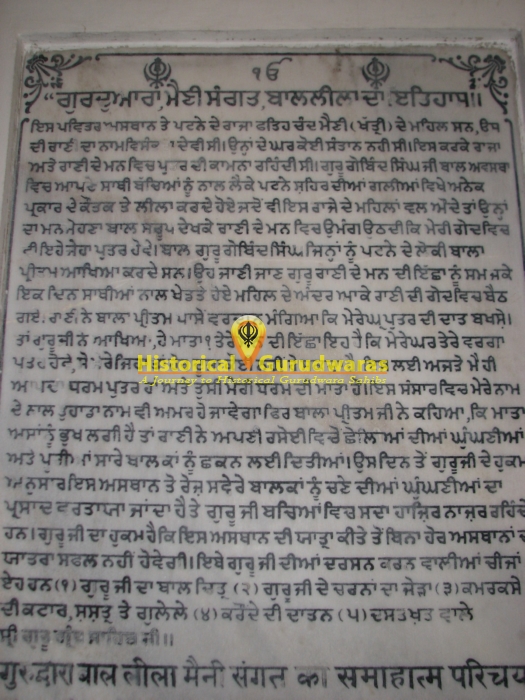 ੴ
"ਗੁਰਦੁਆਰਾ, ਮੈਣੀ ਸੰਗਤ, ਬਾਲ ਲੀਲਾ ਦਾ ਇਤਿਹਾਸ॥
ਇਸ ਪਵਿਤਰ ਅਸਥਾਨ ਤੇ ਪਟਨੇ ਦੇ ਰਾਜਾ ਫਤਿਹ ਚੰਦ ਮੈਣੀ (ਖੱਤ੍ਰੀ) ਦੇ ਮਹਿਲ ਸਨ, ਉਸ
ਦੀ ਰਾਣੀ ਦਾ ਨਾਮ ਦੇਵੀ ਸੀ। ਉਨਾਂ ਦੇ ਘਰ ਕੋਈ ਸੰਤਾਨ ਨਹੀ ਸੀ। ਇਸ ਕਰਕੇ ਰਾਜਾ
ਅਤੇ ਰਾਣੀ ਦੇ ਮਨ ਵਿਚ ਪੁਤਰ ਦੀ ਕਾਮਨਾ ਰਹਿੰਦੀ ਸੀ। ਗੁਰੂ ਗੋਬਿੰਦ ਸਿੰਘ ਜੀ ਬਾਲ ਅਵਸਥਾ
ਵਿਚ ਆਪਣੇ ਸਾਥੀ ਬੱਚਿਆਂ ਨੂੰ ਨਾਲ ਲੈਕੇ ਪਟਨੇ ਸ਼ਹਿਰ ਦੀਆਂ ਗਲੀਆਂ ਵਿਖੇ ਅਨੇਕ
ਪ੍ਰਕਾਰ ਦੇ ਕੌਤਕ ਤੇ ਲੀਲਾ ਕਰਦੇ ਹੋਏ ਜਦੋਂ ਵੀ ਇਸ ਰਾਜੇ ਦੇ ਮਹਿਲਾਂ ਵਲ ਔਂਦੇ ਤਾਂ ਉਨ੍ਹਾਂ
ਦਾ ਮਨ ਮੋਹਣਾ ਬਾਲ ਸਰੂਪ ਦੇਖਕੇ ਰਾਣੀ ਦੇ ਮਨ ਵਿਚ ਉਮੰਗ ਉਠਦੀ ਕਿ ਮੇਰੀ ਗੋਦ ਵਿਚ
ਵੀ ਇਹੋ ਜੇਹਾ ਪੁਤਰ ਹੋਵੇ। ਬਾਲ ਗੁਰੂ ਗੋਬਿੰਦ ਸਿੰਘ, ਜਿਨ੍ਹਾਂ ਨੂੰ ਪਟਨੇ ਦੇ ਲੋਕੀ ਬਾਲਾ
ਪ੍ਰੀਤਮ ਆਖਿਆ ਕਰਦੇ ਸਨ। ਉਹ ਜਾਣੀ ਜਾਣ ਗੁਰੂ ਰਾਣੀ ਦੇ ਮਨ ਦੀ ਇੱਛਾ ਨੂੰ ਸਮਜਕੇ
ਇਕ ਦਿਨ ਸਾਥੀਆਂ ਨਾਲ ਖੇਡਤੇ ਹੋਏ ਮਹਿਲ ਦੇ ਅੰਦਰ ਆਕੇ ਰਾਣੀ ਦੀ ਗੋਦ ਵਿਚ ਬੈਠ
ਗਏ। ਰਾਣੀ ਨੇ ਬਾਲਾ ਪ੍ਰੀਤਮ ਪਾਸੋਂ ਮੰਗਿਆ ਕਿ ਮੇਰੇਘਰ ਪੁਤਰ ਦੀ ਦਾਤ ਬਖਸੋ।
ਤਾਂ ਗੁਰੂ ਜੀ ਨੇ ਆਖਿਆ, ਹੇ ਮਾਤਾ! ਤੇਰੀ ਦੀ ਇੱਛਾ ਇਹ ਹੈ ਕਿ ਮੇਰੇ ਘਰ ਤੇਰੇ ਵਰਗਾ
ਲਈ ਅਜ ਤੋ ਮੈ ਹੀ
Historical Gurudwaras
A Journey to Historical Gurudwara Sahibs
ਆਪਦਾ ਧਰਮ ਪੁਤਰ ਹਾਂ ਅਤੇ ਤੁਸੀ ਮੇਰੀ ਧਰਮ ਦੀ ਮਾਤਾ ਹੋ। ਇਸ ਸੰਸਾਰ ਵਿਚ ਮੇਰੇ ਨਾਮ
ਦੇ ਨਾਲ ਤੁਹਾਡਾ ਨਾਮ ਵੀ ਅਮਰ ਹੋ ਜਾਵੇਗਾ ਫਿਰ ਬਾਲਾ ਪ੍ਰੀਤਮ ਜੀ ਨੇ ਕਹਿਆ, ਕਿ ਮਾਤਾ
ਅਸਾਂਨੂੰ ਭੁਖ ਲਗੀ ਹੈ ਤਾਂ ਰਾਣੀ ਨੇ ਆਪਣੀ ਰਸੋਈ ਵਿਚੋਂ ਛੋਲਿਆਂ ਦੀਆਂ ਘੁੰਘਣੀਆਂ
ਅਤੇ ਪੁਰੀਆਂ ਸਾਰੇ ਬਾਲਕਾਂ ਨੂੰ ਛਕਨ ਲਈ ਦਿਤੀਆਂ। ਉਸ ਦਿਨ ਤੋਂ ਗੁਰੂ ਜੀ ਦੇ ਹੁਕਮ
ਅਨੁਸਾਰ ਇਸ ਅਸਥਾਨ ਤੇ ਰੋਜ਼ ਸਵੇਰੇ ਬਾਲਕਾਂ ਨੂੰ ਚਣੇ ਦੀਆਂ ਘੁੰਘਣੀਆਂ ਦਾ
ਪ੍ਰਸਾਦ ਵਰਤਾਯਾ ਜਾਂਦਾ ਹੈ ਤੇ ਗੁਰੂ ਜੀ ਬਚਿਆਂ ਵਿਚ ਸਦਾ ਹਾਜ਼ਿਰ ਨਾਜ਼ਰ ਰਹਿੰਦੇ
ਹਨ। ਗੁਰੂ ਜੀ ਦਾ ਹੁਕਮ ਹੈ ਕਿ ਇਸ ਅਸਥਾਨ ਦੀ ਯਾਤ੍ਰਾ ਕੀਤੇ ਤੋਂ ਬਿਨਾ ਹੋਰ ਅਸਥਾਨਾਂ ਦੀ
ਯਾਤਰਾ ਸਫਲ ਨਹੀਂ ਹੋਵੇਗੀ। ਇਥੇ ਗੁਰੂ ਜੀ ਦੀਆਂ ਦਰਸਨ ਕਰਨ ਵਾਲੀਆਂ ਚੀਜਾਂ
ਏਹ ਹਨ (੧) ਗੁਰੂ ਜੀ ਦਾ ਬਾਲ ਚਿਤ੍ਰ (੨) ਗੁਰੂ ਜੀ ਦੇ ਚਰਨਾਂ ਦਾ ਜੋੜਾ (੩) ਕਮਰਕਸੇ
ਦੀ ਕਟਾਰ, ਸ਼ਸ਼ਤ੍ਰ ਤੇ ਗੁਲੇਲੇ (੪) ਕਰੌਂਦੇ ਦੀ ਦਾਤਨ (੫) ਦਸਤਖ਼ਤ ਵਾਲੇ
ਸ੍ਰੀ ਗੁਰੂ ਗ੍ਰੰਥ ਸਾਹਿਬ ਜੀ॥
गुरुद्वारा बाल लीला मैनी संगत का समाहात्म परिचय